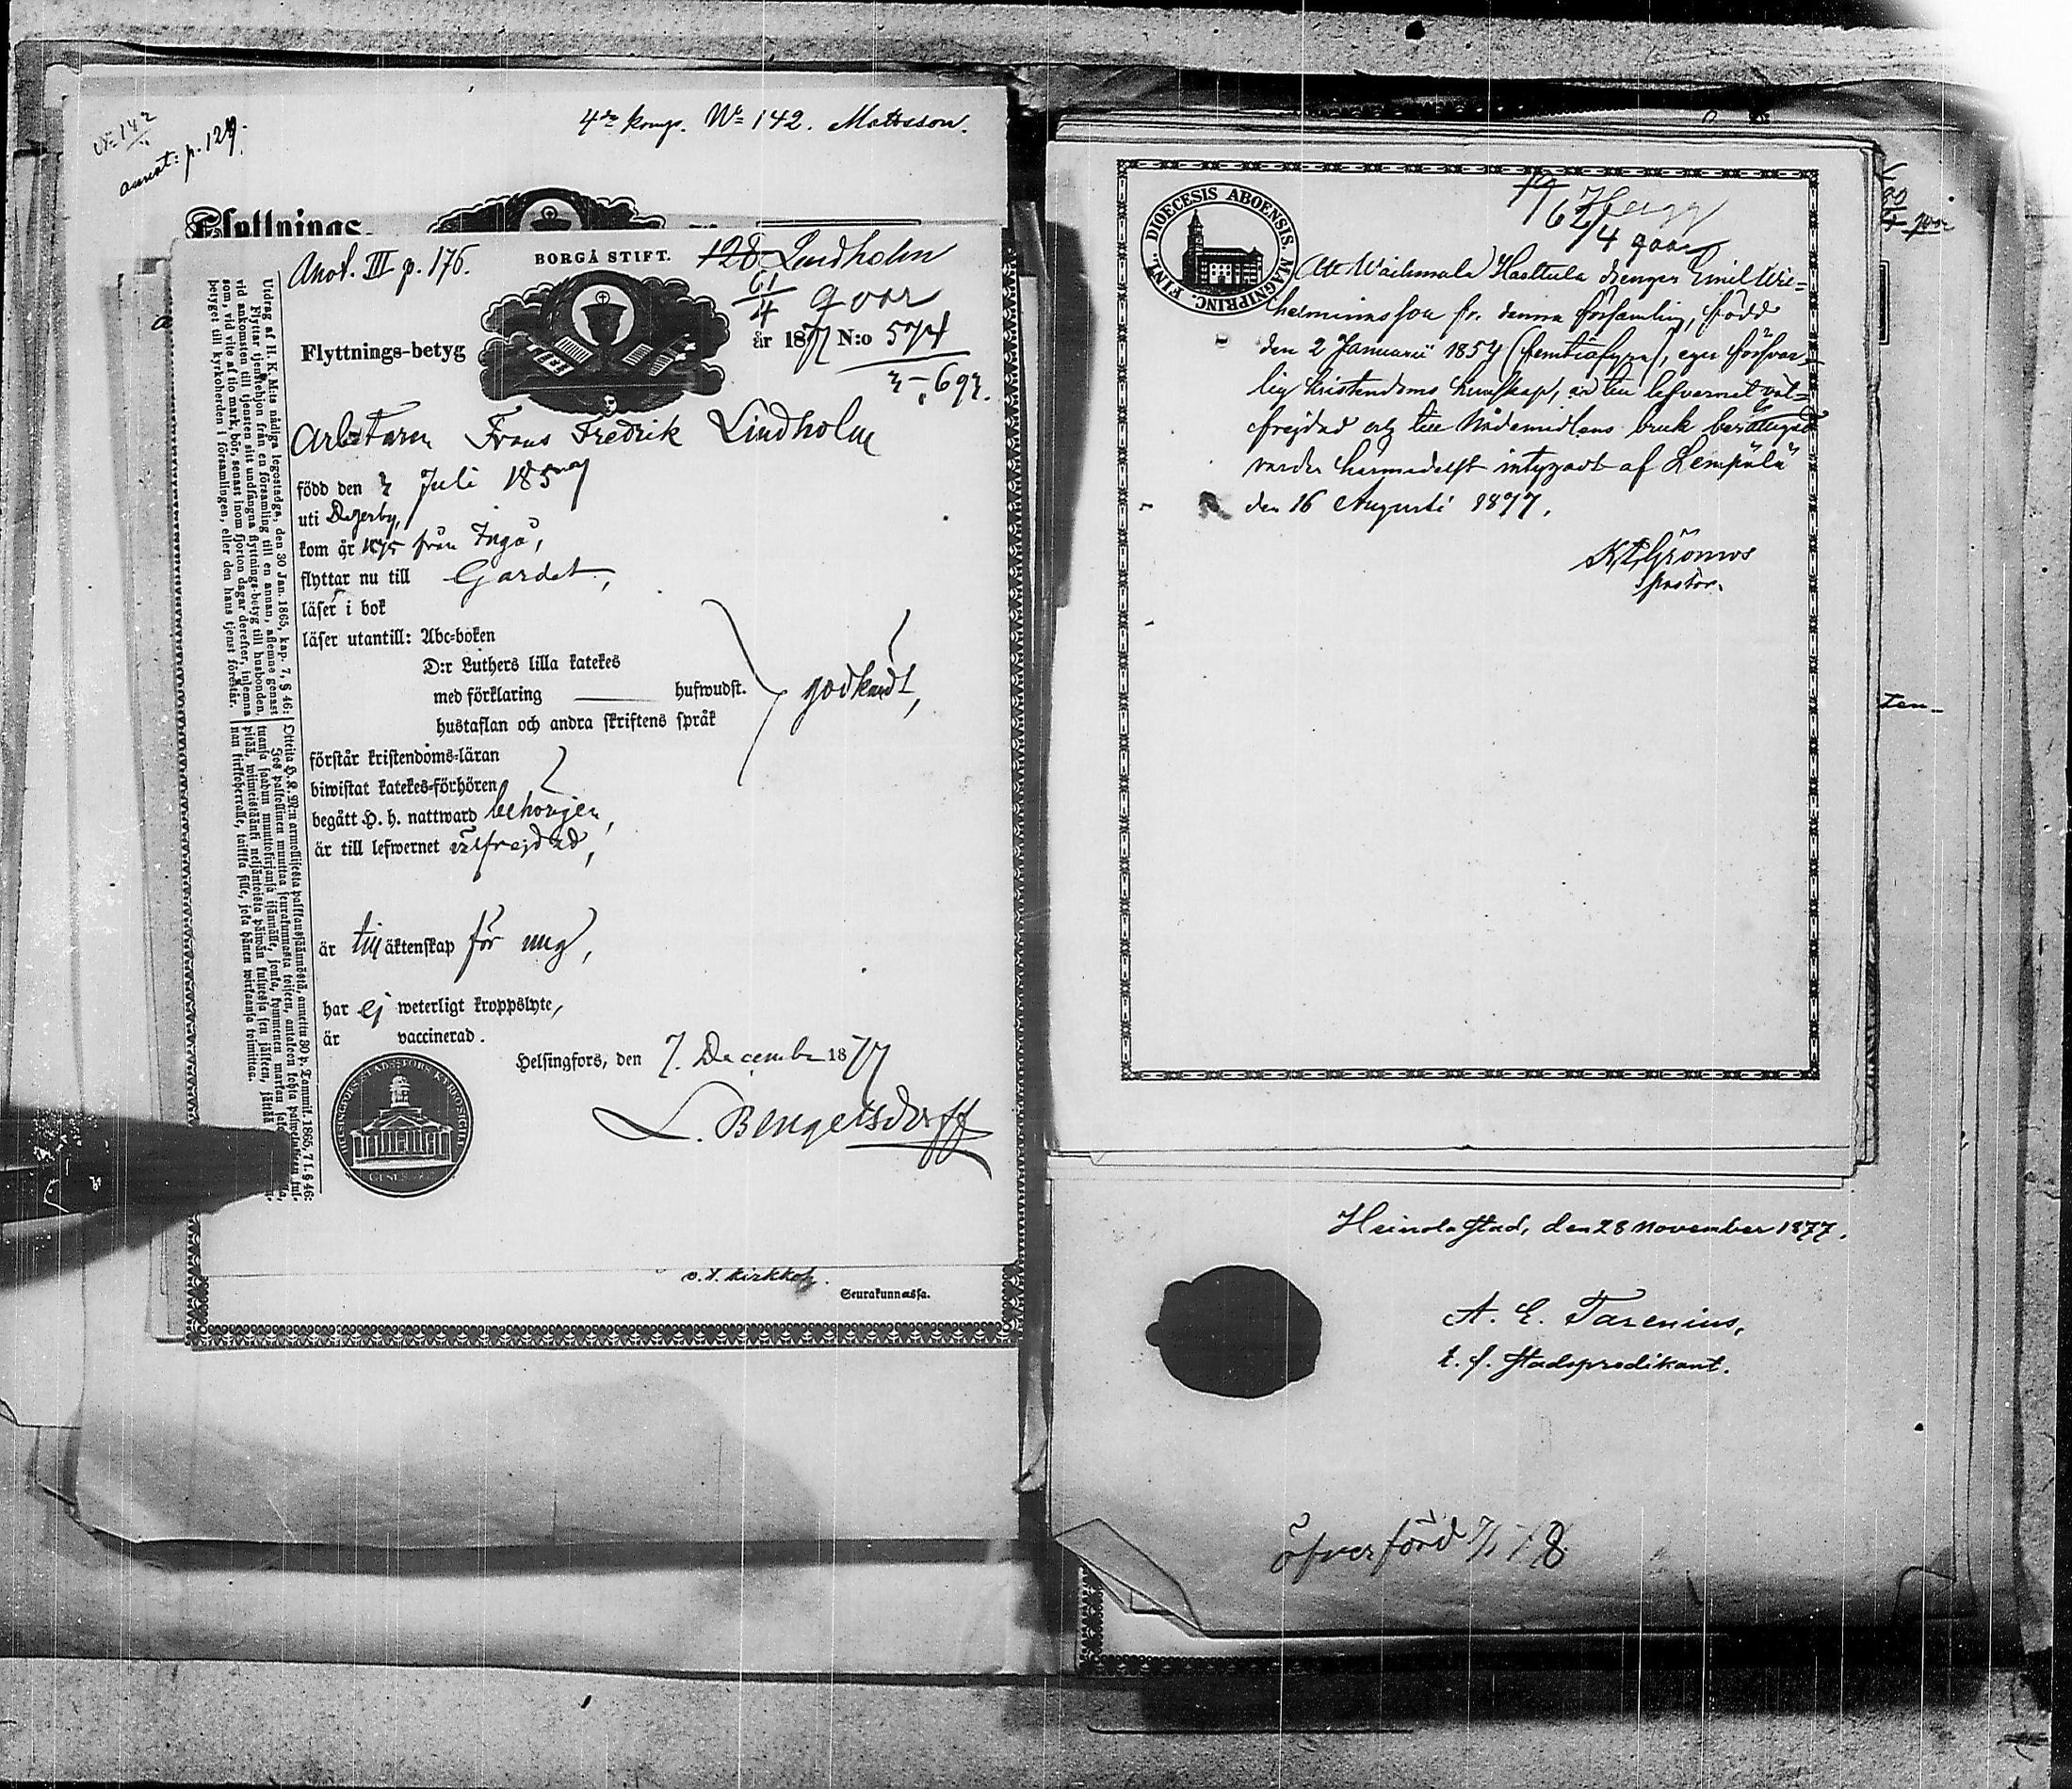 annot: p. 129.
4de komp. No 142. Mattsson.
Flyttnings-
Anot. III p. 176.
BORGÅ STIFT.
128 Lindholm
61/4 qvar
Flyttnings-betyg
år 1877 N:o 574
3-693.
Arbetaren Frans Fredrik Lindholm
född den 3 Juli 185
uti Degerby,
kom år 1875 från Ingå,
flyttar nu till Gardet,
läser i bok
läser utantill: Abc-boken
D:r Luthers lilla katekes
med förklaring hufwudst.
godkändt,
hustaflan och andra skriftens språk
förstår kristendoms-läran
biwistat katekes-förhören
begått H. h. nattward behörigen,
är till lefwernet välfrejdad,
är till äktenskap för ung,
har ej weterligt kroppslyte,
är vaccinerad.
Helsingfors, den 7. December 1877
L. Bengelsdorff
Utdrag af H. K. M:ts nådiga legostadga, den 30 Jan. 1865, kap. 7, § 46:
Flyttar tjenstehjon från en församling till en annan, aflemne genast
vid ankomsten till tjensten sitt undfångna flyttnings-betyg till husbonden,
som, vid vite af tio mark, bör, senast inom fjorton dagar derefter, inlemna
betyget till kyrkoherden i församlingen, eller den hans tjenst förestår.
v. t. kirkkoh.
Seurakunnassa.
DIOECESIS ABOENSIS MAGNI PRINC. FINL.
62/4 qvar
Att Waihmala Hasttula drenger Emil Wil-
helminsson fr. denna församling, född
den 2 Januarii 1854 (femtiofyra), eger försvar-
lig kristendoms kunskap, är till lefvernet väl-
frejdad och till Nådemedlens bruk berättigad
varder härmedelst intygadt af Lempälä
den 16 Augusti 1877.
Pastor.
Heinola stad, den 28 November 1877.
A. E. Tarenius,
t. f. stadspredikant.
öfverförd 7/1 78